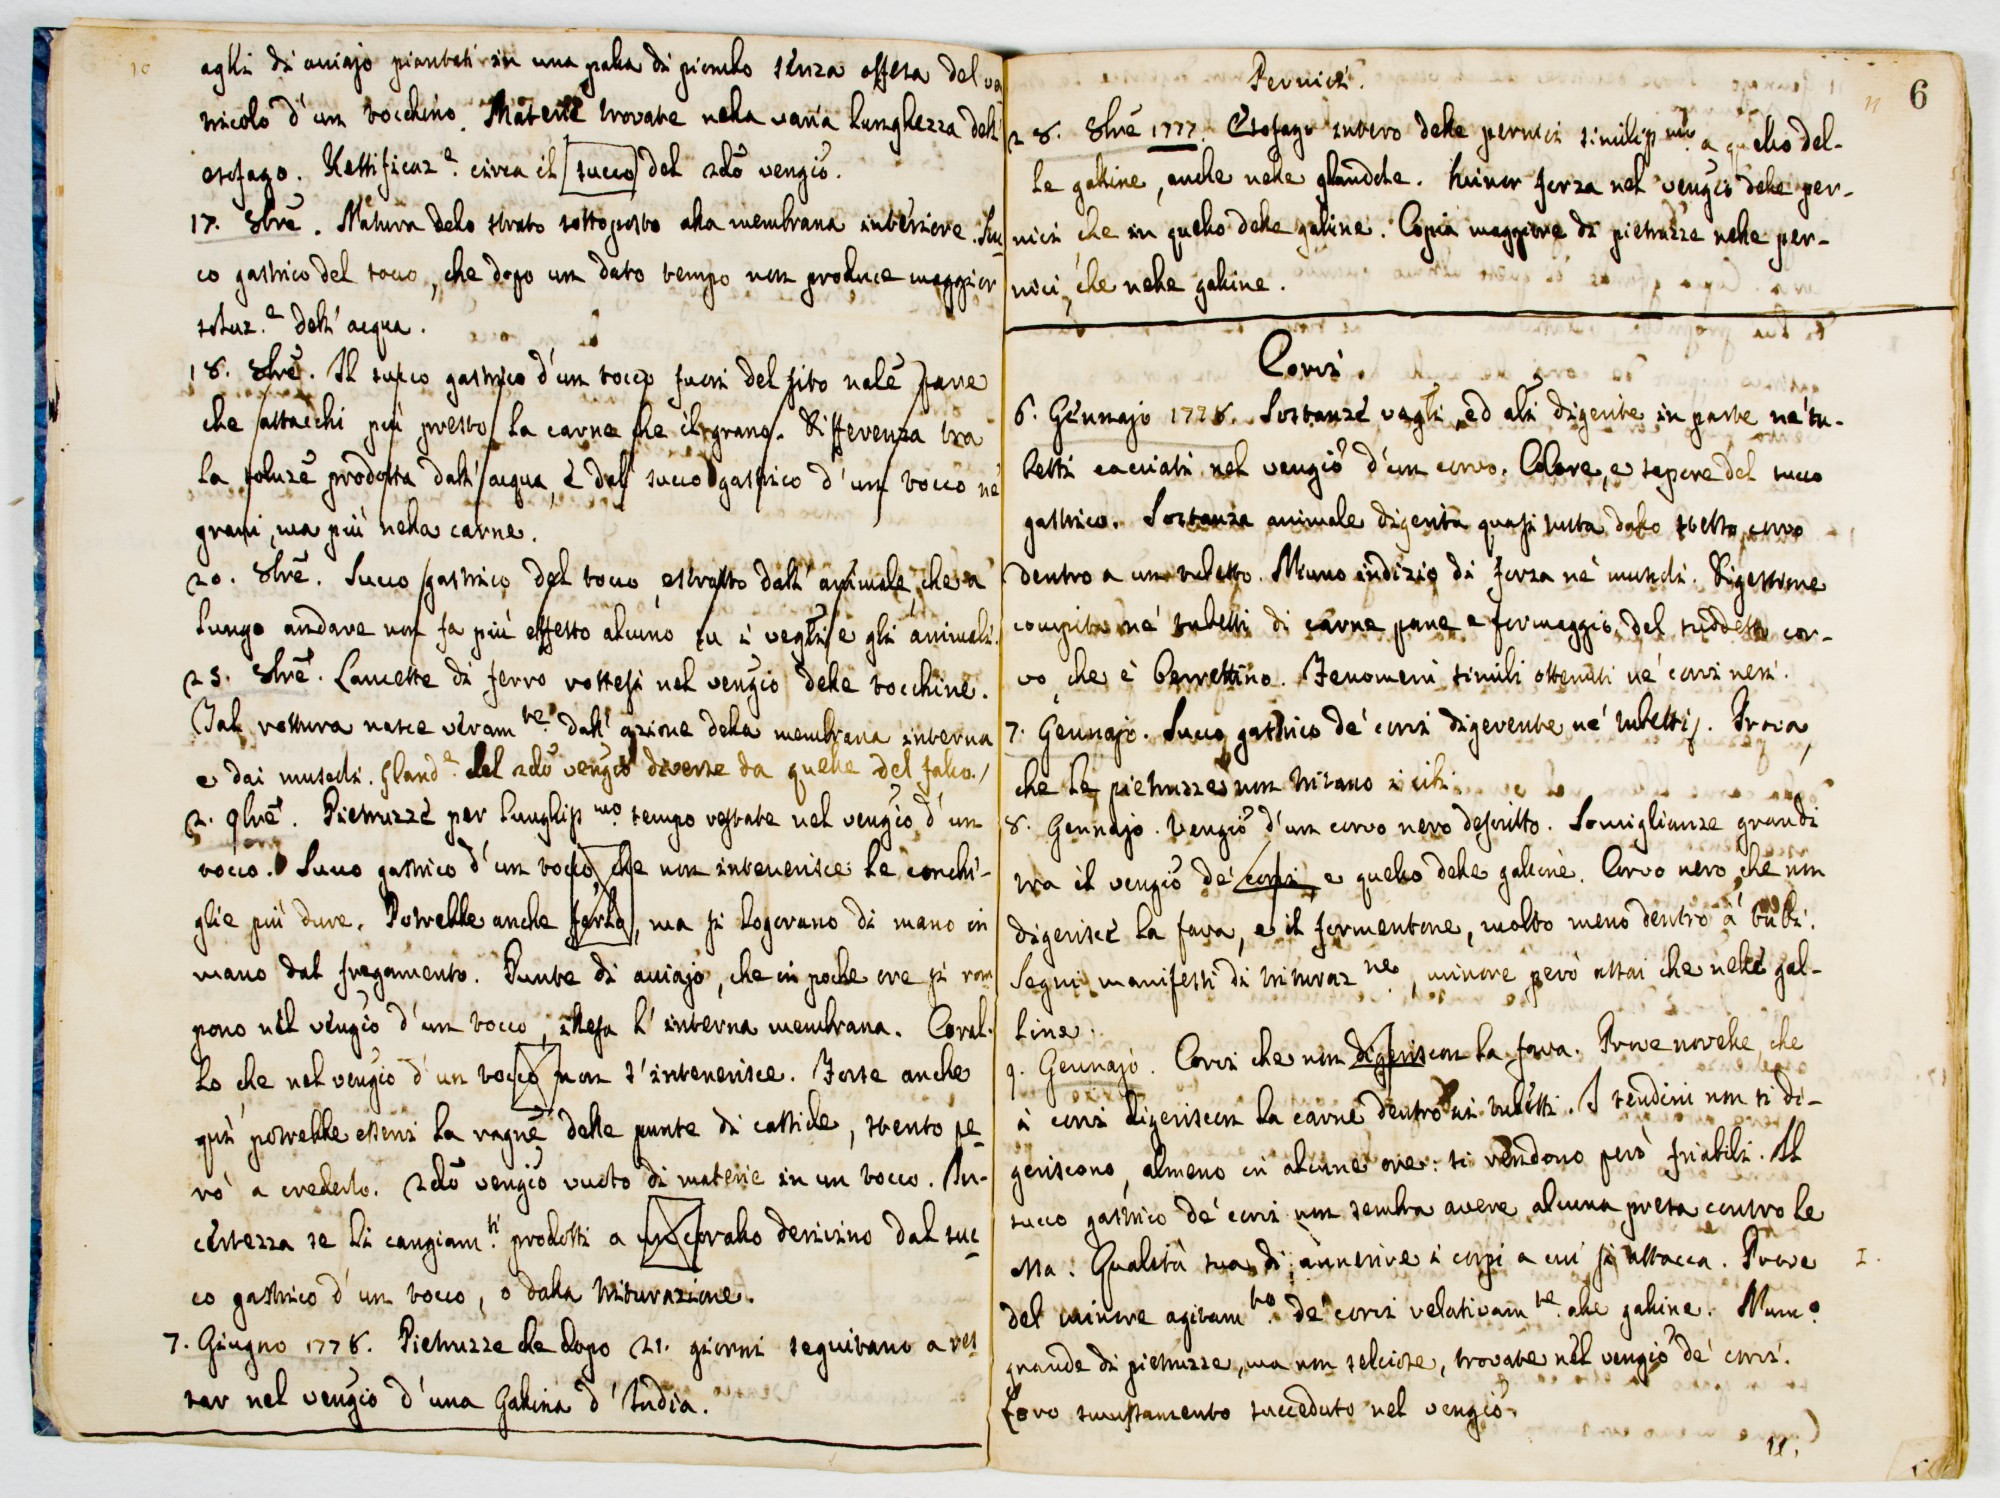 10
aghi di acciajo piantati in una palla di piombo senza offesa del ve
tricolo d'un tocchino. Materie trovate nella varia lunghezza dell'
esofago. Rettificaz.e circa il succo del 2do vengio.
17. 8bre. Natura dello strato sottoposto alla membrana interiore. Suc
co gastrico del tocco, che dopo un dato tempo non produce maggior
soluz.e dell'acqua.
18. 8bre. Il succo gastrico d'un tocco fuori del sito nale pare
che attacchi più presto la carne che il grano. Differenza tra
la soluze prodotta dall'acqua, e dal succo gastrico d'un tocco ne
grani, ma più nella carne.
20. 8bre. Succo gastrico del tocco estratto dall'animale, che a
lungo andare non fa più effetto alcuno su i vegli e gli animali.
25. 8bre. Lancette di ferro rottesi nel vengio delle tocchine.
Tal rottura nasce veram.te dall'azione della membrana interna
e dai muscoli. Gland.e del 2do vengio diverse da quelle del falco.
2. 9bre. Pietruzze per lunghiss.mo tempo restate nel vengio d'un
tocco. Succo gastrico d'un tocco, che non intenerisce le conchi-
glie più dure. Potrebbe anche farlo, ma si logorano di mano in
mano dal fregamento. Punte di acciajo, che in poche ore si rom
pono nel vengio d'un tocco, illesa l'interna membrana. Coral-
lo, che nel vengio d'un tocco non s'intenerisce. Forse anche
qui potrebbe essersi la ragne delle punte di casside, stento pe-
rò a crederlo. 2do vengio vuoto di materie in un tocco. In-
certezza se li cangiam.ti prodotti a un corallo derivino dal suc-
co gastrico d'un tocco, o dalla triturazione.
7. Giugno 1778. Pietruzze che dopo 21. giorni seguitano a res
tar nel vengio d'una Gallina d'India.
11
6
Pernici.
28. 8bre 1777. Esofago intero delle pernici similiss.mo a quello del-
le galline, anche nelle glandole. Minor forza nel vengio delle per-
nici, che in quello delle galline. Copia maggiore di pietruzze nelle per-
nici, che nelle galline.
Corvi.
6. Gennajo 1778. Sostanze vegli, ed ali digerite in parte ne' tu-
betti cacciati nel vengio d'un corvo. Colore, e sapore del succo
gastrico. Sostanza animale digerita quasi tutta dallo stesso corvo
dentro a un tubetto. Niuno indizio di forza ne' muscoli. Digestione
compita ne' tubetti di carne pane e formaggio, del suddetto cor-
vo, che è berrettino. Fenomeni simili ottenuti ne' corvi neri.
7. Gennajo. Succo gastrico de' corvi digerente ne' tubetti. Prova,
che le pietruzze non tritano i cibi.
8. Gennajo. Vengio d'un corvo nero descritto. Somiglianze grandi
tra il vengio de' corvi, e quello delle galline. Corvo nero, che non
digerisce la fava, e il formentone, molto meno dentro a' tubi.
Segni manifesti di trituraz.ne, minore però assai che nelle gal-
line.
9. Gennajo. Corvi che non digeriscon la fava. Prove novelle, che
i corvi digeriscon la carne dentro ai tubetti. I tendini non si di-
geriscono, almeno in alcune ore: si rendono però friabili. Il
succo gastrico de' corvi non sembra avere alcuna presa contro le
ossa. Qualità sua di annerire i corpi a cui si attacca. Prove
I.
del minore agitam.to de' corvi relativam.te alle galline. Num.o
grande di pietruzze, ma non selciose, trovate nel vengio de' corvi.
Loro smussamento succeduto nel vengio.
11.